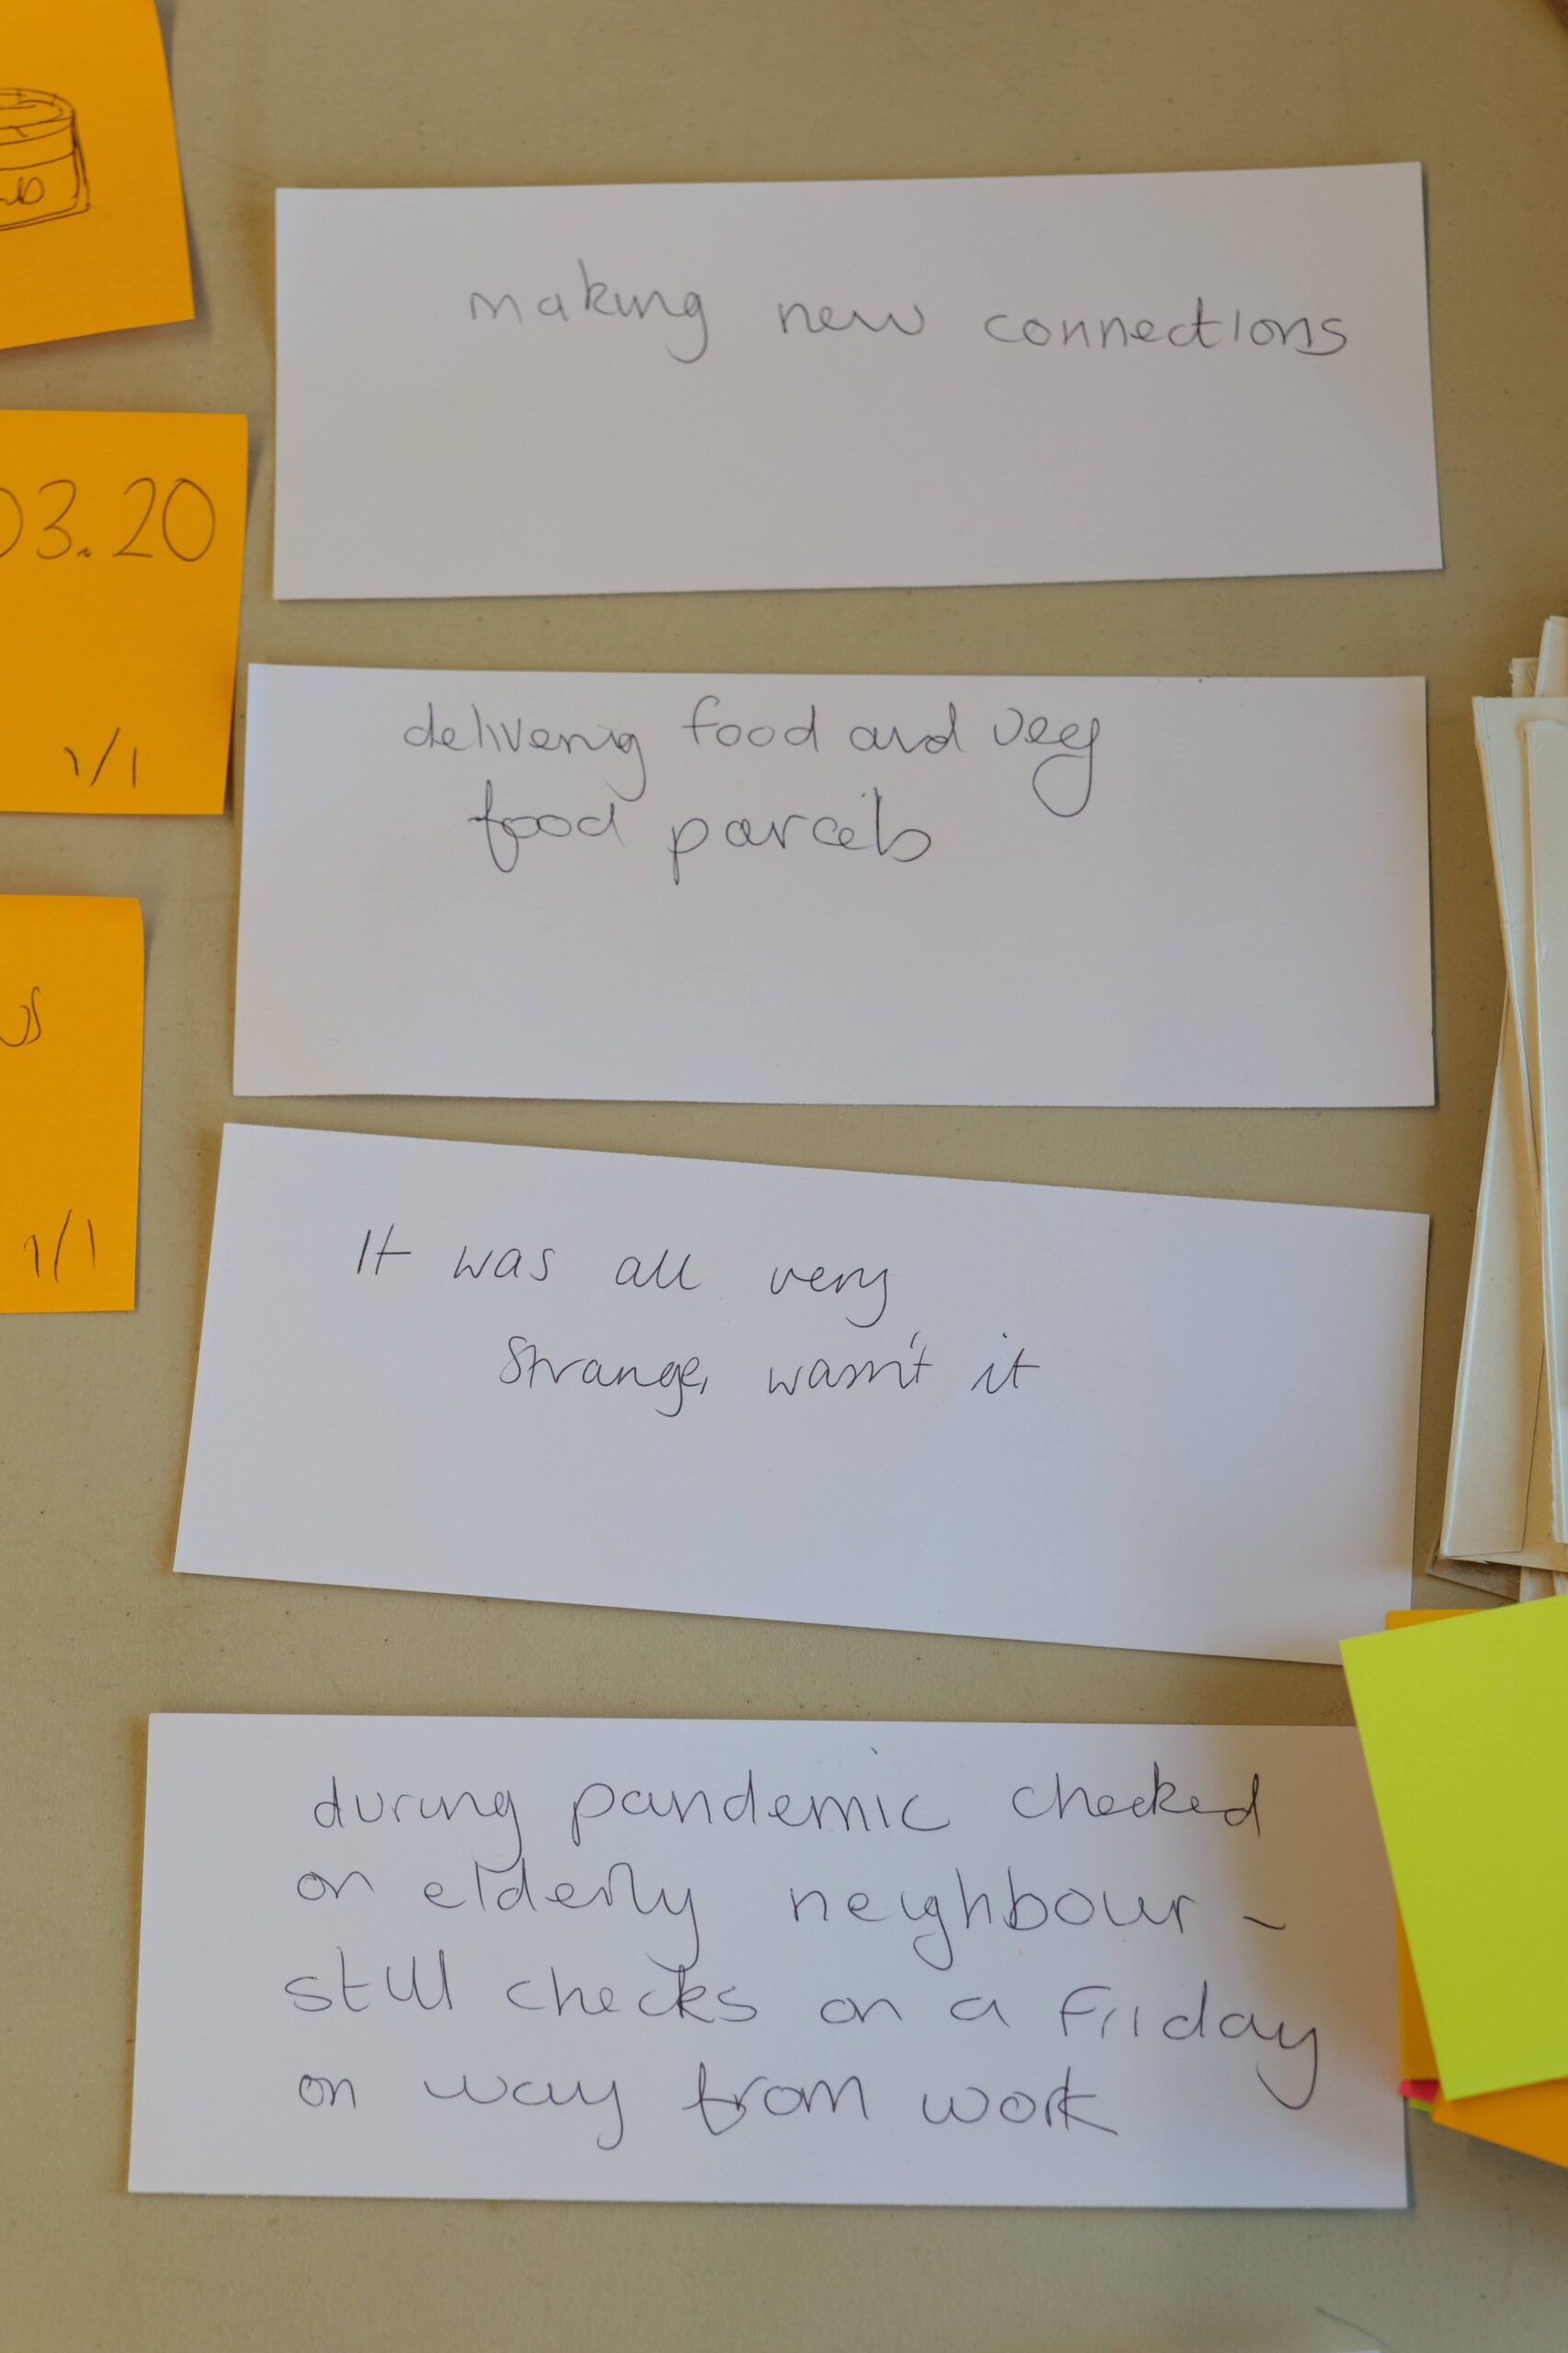 making new connections
03.20
1/1
delivering food and veg
food parcels
1/1
It was all very
strange, wasn't it
during pandemic checked
on elderly neighbour -
still checks on a Friday
on way from work